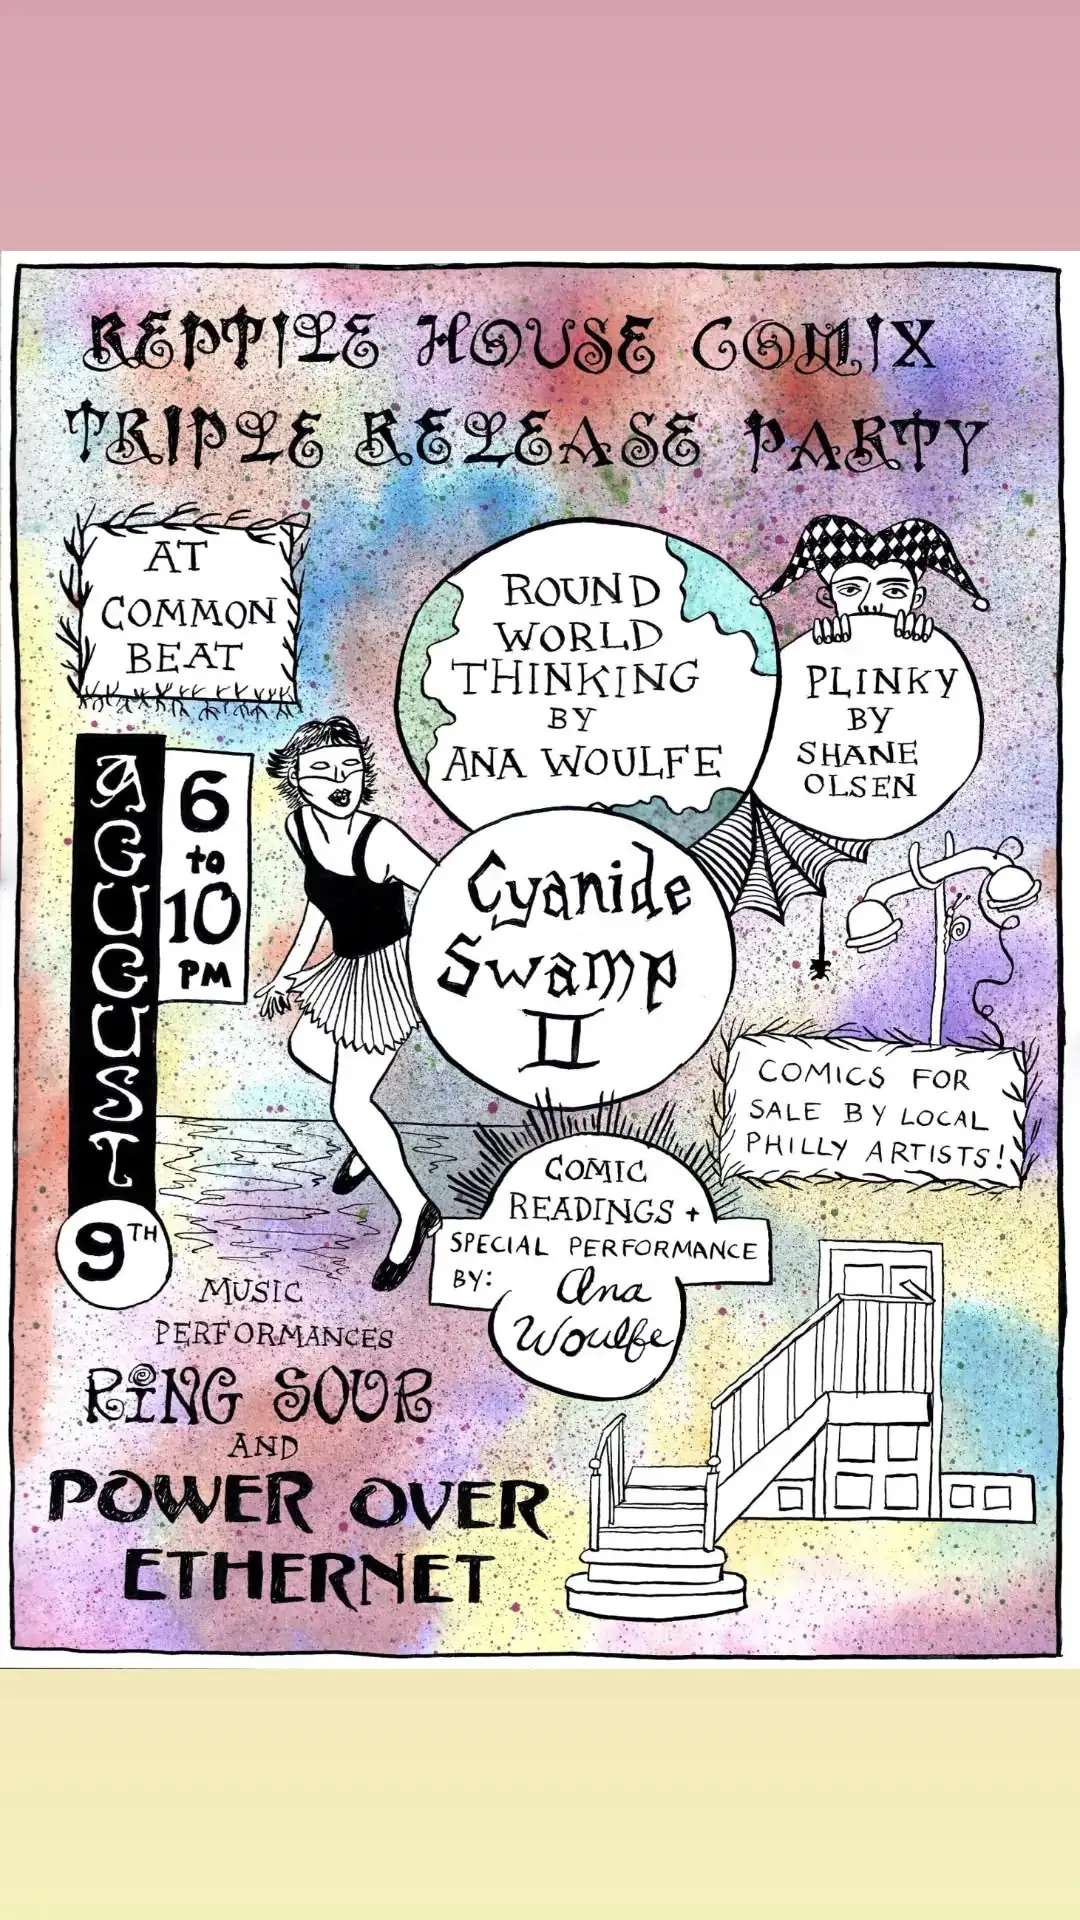 REPTILE HOUSE COMIX
TRIPLE RELEASE PARTY
AT
COMMON
BEAT
AUGUST
9TH
6
to
10
PM
ROUND
WORLD
THINKING
BY
ANA WOULFE
PLINKY
BY
SHANE
OLSEN
Cyanide
Swamp
II
COMICS FOR
SALE BY LOCAL
PHILLY ARTISTS!
COMIC
READINGS +
SPECIAL PERFORMANCE
BY: Ana
Woulfe
MUSIC
PERFORMANCES
RiNG SOUR
AND
POWER OVER
ETHERNET